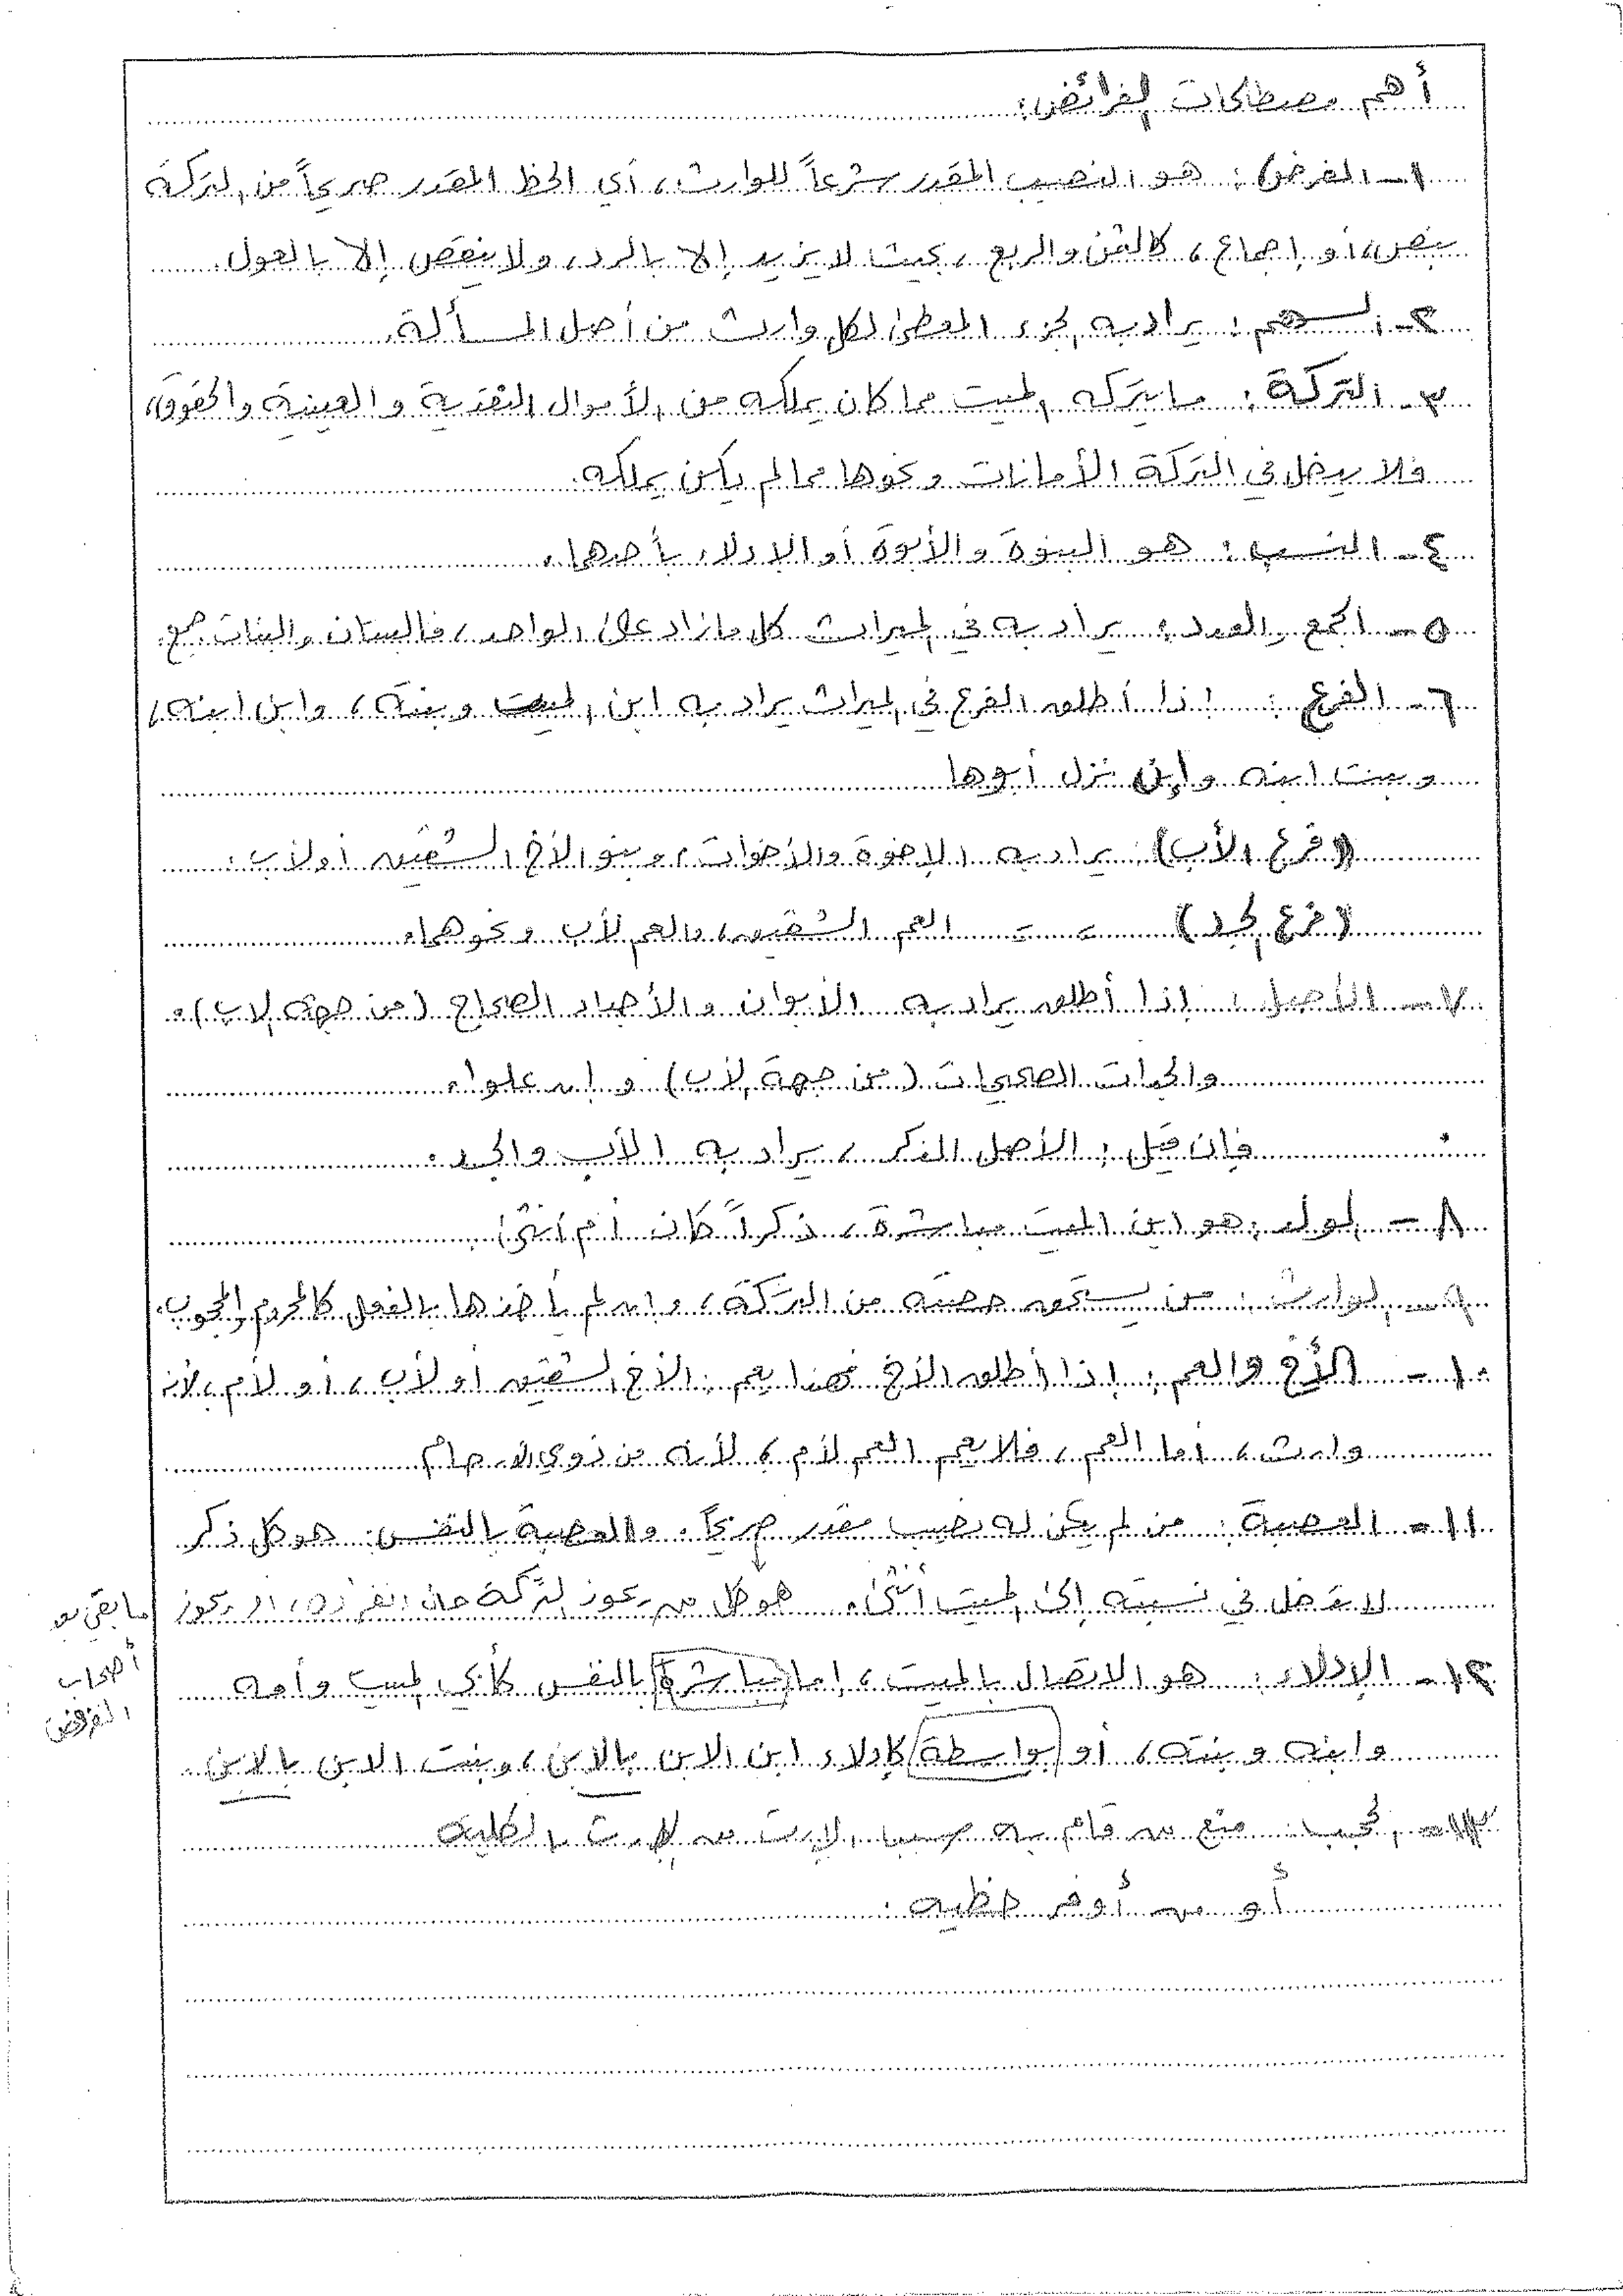 أهم مصطلحات الفرائض:
١- الفرض: هو النصيب المقدر شرعاً للوارث، أي الحظ المقدر صريحاً من التركة
بنص، أو إجماع، كالثمن والربع، بحيث لا يزيد إلا بالرد، ولا ينقص إلا بالعول.
٢- السهم: يراد به الجزء المعطى لكل وارث من أصل المسألة.
٣- التركة: ما يتركه الميت مما كان يملكه من الأموال النقدية والعينية والحقوق،
فلا يدخل في التركة الأمانات ونحوها مما لم يكن يملكه.
٤- النسب: هو البنوة والأبوة أو الإدلاء بأحدهما.
٥- الجمع والعدد: يراد به في الميراث كل ما زاد على الواحد، فالبنتان والبنات جمع.
٦- الفرع: إذا أطلق الفرع في الميراث يراد به ابن الميت وبنته، وابن ابنه،
وبنت ابنه وإن نزل أبوها
(فرع الأب) يراد به الإخوة والأخوات، وبنو الأخ الشقيق أو لأب.
(فرع الجد) = = العم الشقيق، والعم لأب ونحوهما.
٧- الأصل: إذا أطلق يراد به الأبوان والأجداد الصحاح (من جهة الأب).
والجدات الصحيحات (من جهة الأب) وإن علوا.
فإن قيل: الأصل الذكر، يراد به الأب والجد.
٨- الولد: هو ابن الميت مباشرة، ذكراً كان أم أنثى.
٩- الوارث: من يستحق حصته من التركة، وإن لم يأخذها بالفعل كالمحروم والمحجوب.
١٠- الأخ والعم: إذا أطلق الأخ فهذا يعم: الأخ الشقيق أو لأب، أو لأم، لأنه
وارث، أما العم، فلا يعم العم لأم، لأنه من ذوي الأرحام
١١- العصبة: من لم يكن له نصيب مقدر صريحاً. والعصبة بالنفس: هو كل ذكر
لا تدخل في نسبته إلى الميت أنثى. هو كل من يحوز التركة إن انفرد، أو يحوز ما بقي من
أصحاب
الفروض
١٢- الإدلاء: هو الاتصال بالميت، إما مباشرة بالنفس كأبي الميت وأمه
وابنه وبنته، أو بواسطة كإدلاء ابن الابن بالابن، وبنت الابن بالابن.
١٣- الحجب: منع من قام به سبب الإرث من الإرث بالكلية
أو من أوفر حظيه.